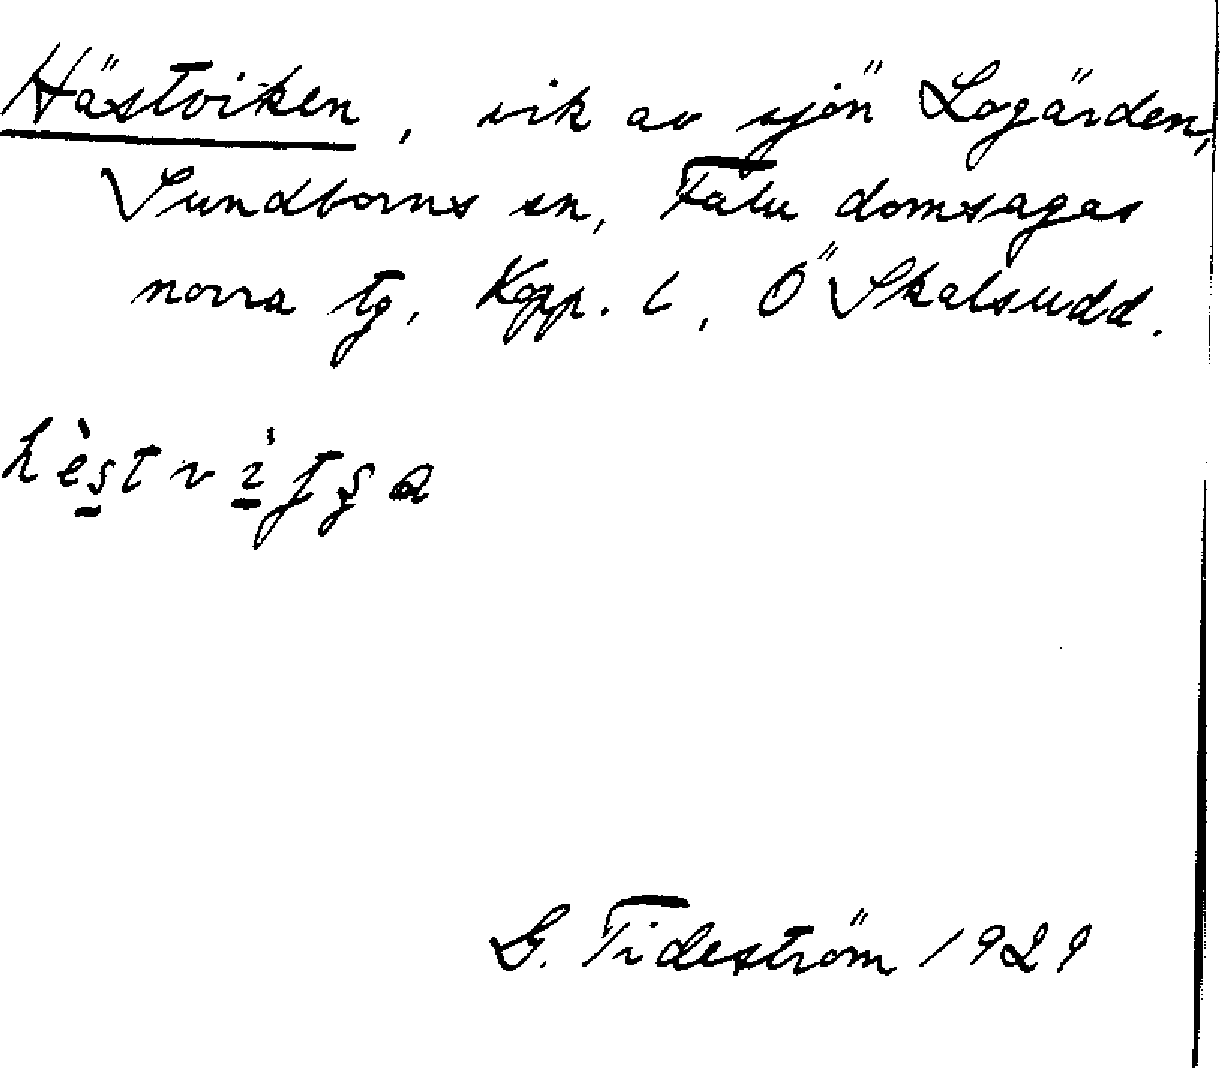 Hästviken, vik av sjön Logärden,
Sundborns sn, Falu domsagas
norra tg, Kopp. l, Ö Skalsudd.
G. Tideström 1929